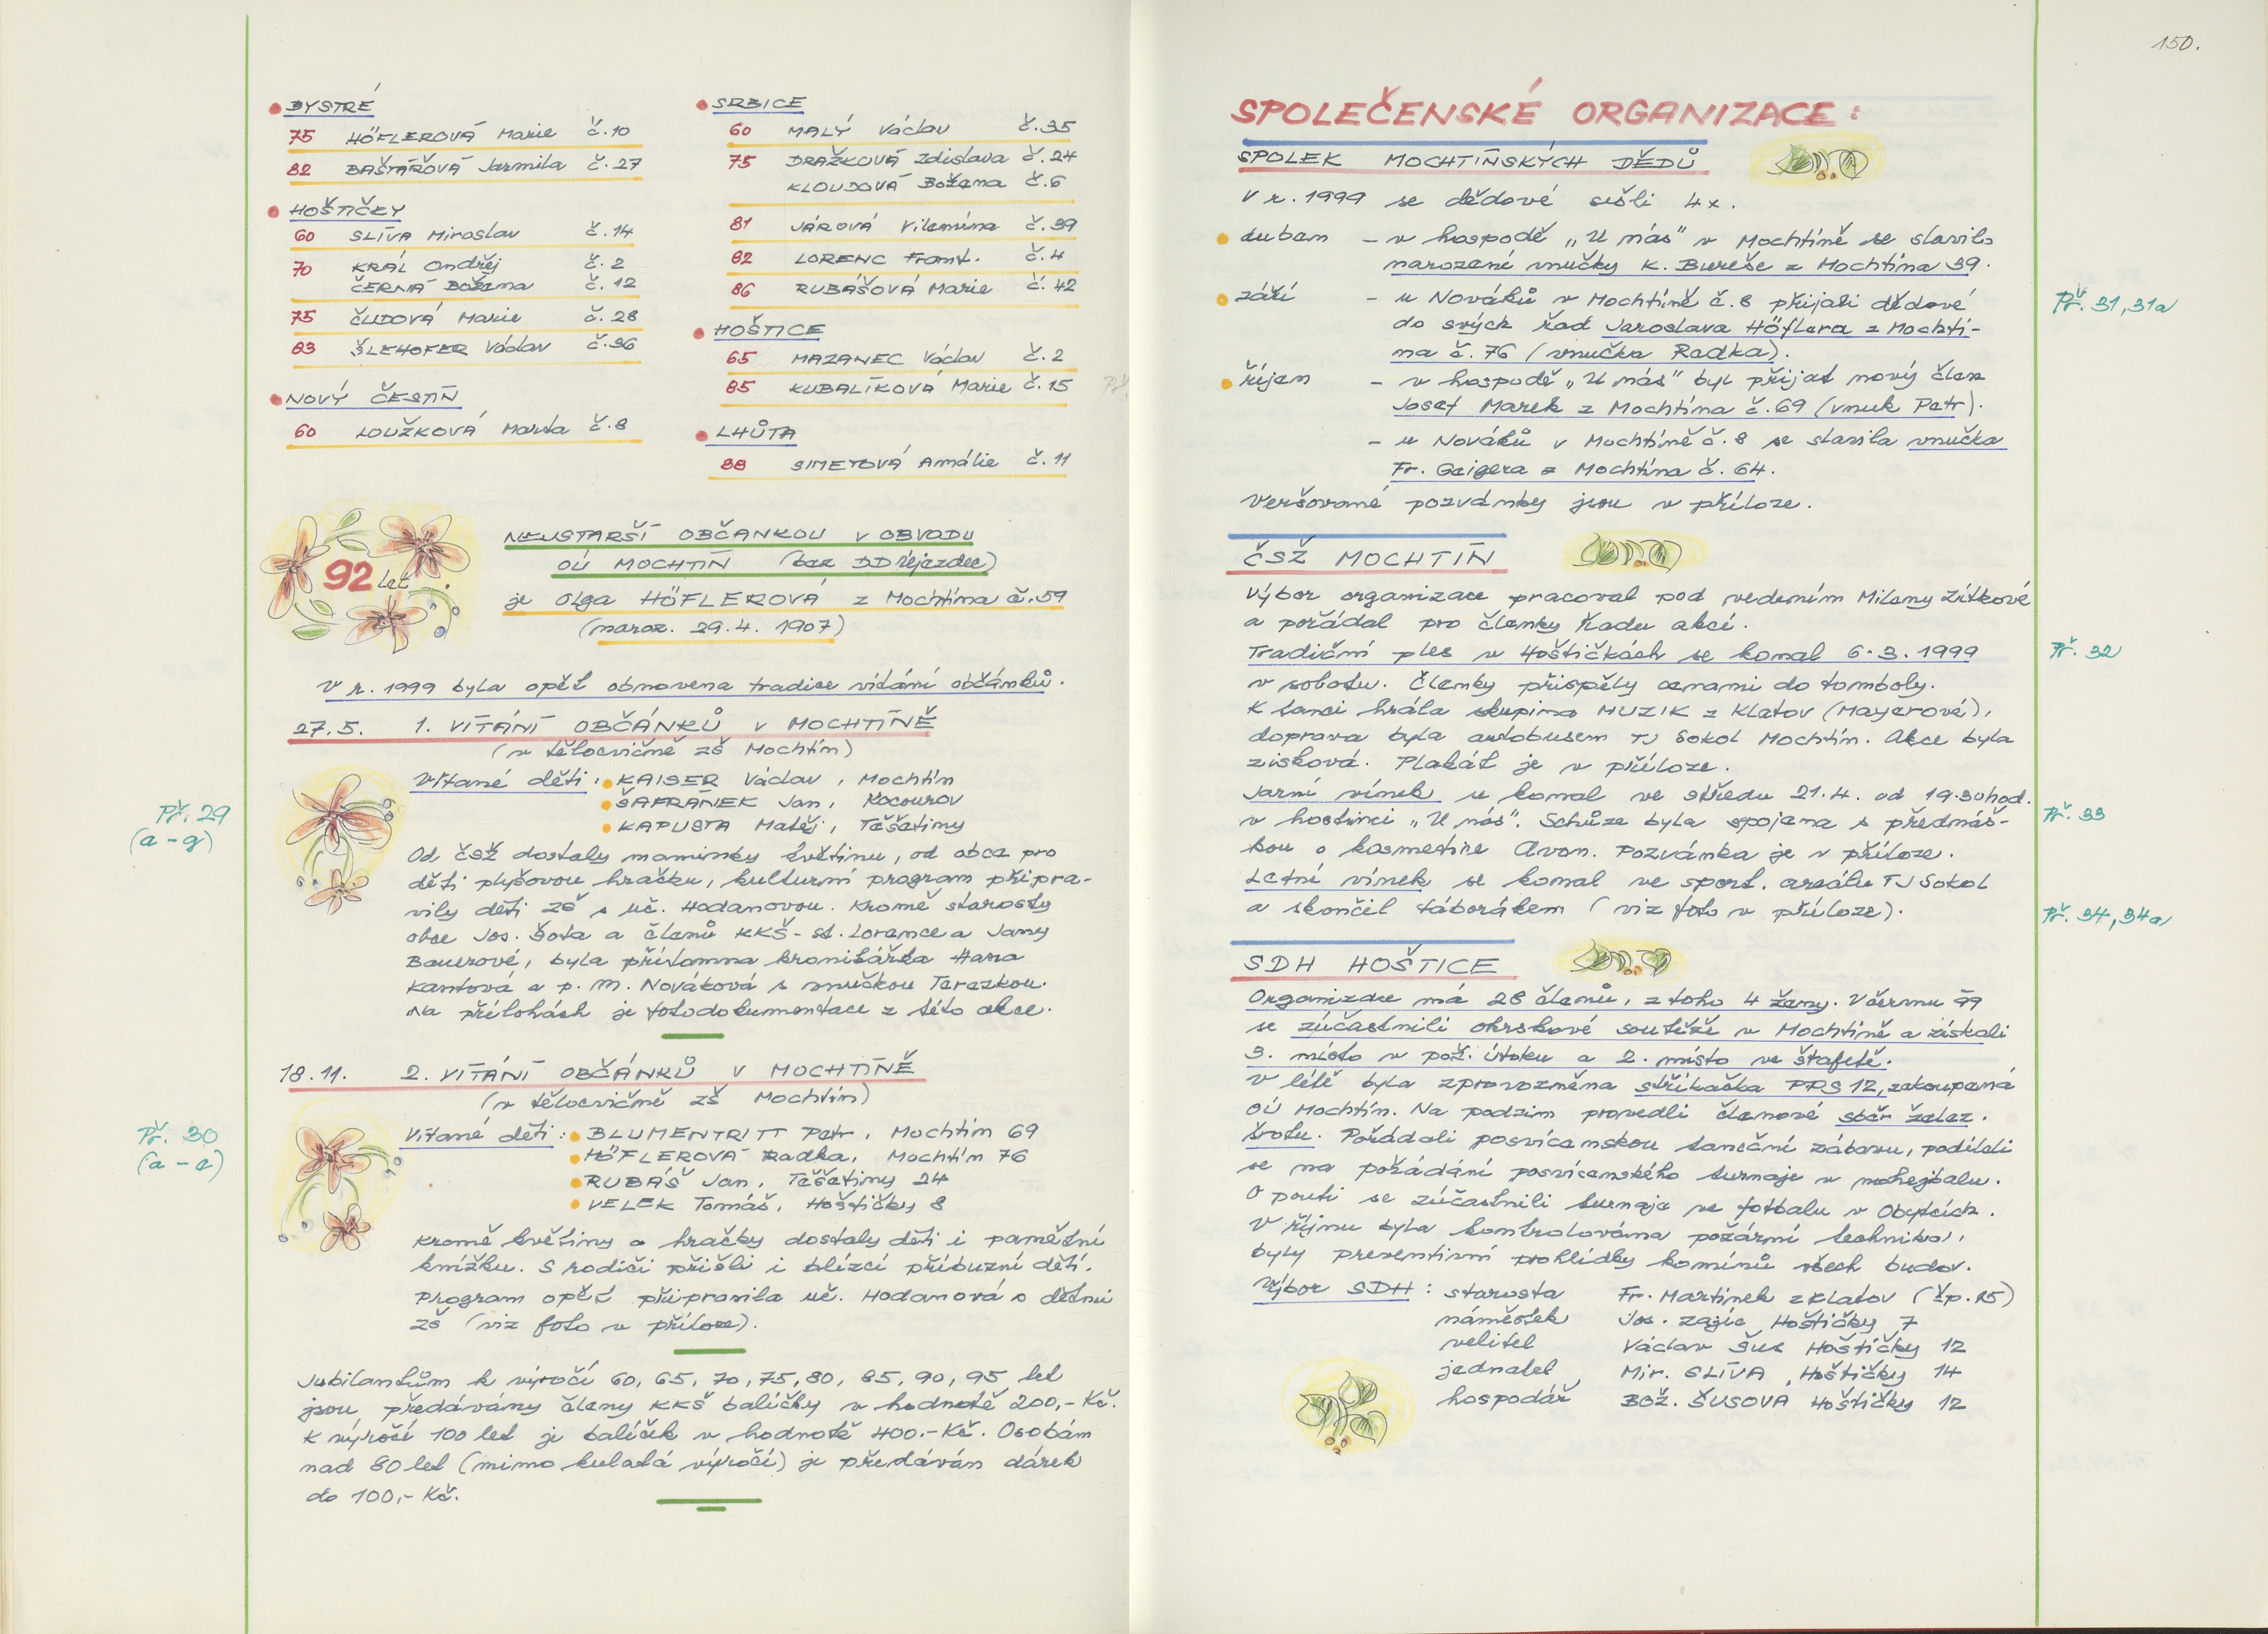 BYSTRÉ
75 HÖFLEROVÁ Marie č.10
82 BAŠTÁŘOVÁ Jarmila č.27
HOŠTIČKY
60 SLÍVA Miroslav č.14
70 KRÁL Ondřej č.2
ČERNÁ Božena č.12
75 ČUDOVÁ Marie č.28
83 ŠLEHOFER Václav č.36
NOVÝ ČESTÍN
60 LOUŽKOVÁ Marta č.8
SRBICE
60 MALÝ Václav č.35
75 DRAŽKOVÁ Zdislava č.24
KLOUDOVÁ Božena č.6
81 JÁROVÁ Vilemína č.39
82 LORENC Frant. č.4
86 RUBÁŠOVÁ Marie č.42
HOŠTICE
65 MAZANEC Václav č.2
85 KUBALÍKOVÁ Marie č.15
LHŮTA
88 SIMETOVÁ Amálie č.11
92 let
NEJSTARŠÍ OBČANKOU V OBVODU
OÚ MOCHTÍN (bez DD Újezdec)
je Olga HÖFLEROVÁ z Mochtína č.59
(naroz. 29.4. 1907)
V r. 1999 byla opět obnovena tradice vítání občánků.
27.5. 1. VÍTÁNÍ OBČÁNKŮ V MOCHTÍNĚ
(v tělocvičně ZŠ Mochtín)
Př. 29
(a-g)
Vítané děti: KAISER Václav, Mochtín
ŠAFRÁNEK Jan, Kocourov
KAPUSTA Matěj, Těšetiny
Od ČSŽ dostaly maminky květinu, od obce pro
děti plyšovou hračku, kulturní program připra-
vily děti ZŠ s uč. Hodanovou. Kromě starosty
obce Jos. Šota a členů KKŠ - st. Lorence a Jany
Bauerové, byla přítomna kronikářka Hana
Kantová a p. M. Nováková s vnučkou Terezkou.
Na přílohách je fotodokumentace z této akce.
18.11. 2. VÍTÁNÍ OBČÁNKŮ V MOCHTÍNĚ
(v tělocvičně ZŠ Mochtín)
Př. 30
(a-e)
Vítané děti: BLUMENTRITT Petr, Mochtín 69
HÖFLEROVÁ Radka, Mochtín 76
RUBÁŠ Jan, Těšetiny 24
VELEK Tomáš, Hoštičky 8
Kromě květiny a hračky dostaly děti i pamětní
knížku. S rodiči přišli i blízcí příbuzní dětí.
Program opět připravila uč. Hodanová s dětmi
ZŠ (viz foto v příloze).
Jubilantům k výročí 60, 65, 70, 75, 80, 85, 90, 95 let
jsou předávány členy KKŠ balíčky v hodnotě 200,- Kč.
K výročí 100 let je balíček v hodnotě 400.- Kč. Osobám
nad 80 let (mimo kulatá výročí) je předáván dárek
do 100,- Kč.
150.
SPOLEČENSKÉ ORGANIZACE:
SPOLEK MOCHTÍNSKÝCH DĚDŮ
V r. 1999 se dědové sešli 4x.
duben - v hospodě „U nás" v Mochtíně se slavilo
narození vnučky K. Bureše z Mochtína 39.
září - u Nováků v Mochtíně č.8 přijali dědové
do svých řad Jaroslava Höflera z Mochtí-
na č. 76 (vnučka Radka).
Př. 31, 31a
říjen - v hospodě „U nás" byl přijat nový člen
Josef Marek z Mochtína č.69 (vnuk Petr).
- u Nováků v Mochtíně č.8 se slavila vnučka
Fr. Geigera z Mochtína č. 64.
Veršované pozvánky jsou v příloze.
ČSŽ MOCHTÍN
Výbor organizace pracoval pod vedením Mileny Zítkové
a pořádal pro členky řadu akcí.
Tradiční ples v Hoštičkách se konal 6.3.1999
Př. 32
v sobotu. Členky přispěly cenami do tomboly.
K tanci hrála skupina MUZIK z Klatov (Mayerové),
doprava byla autobusem TJ Sokol Mochtín. Akce byla
zisková. Plakát je v příloze.
Jarní vínek se konal ve středu 21.4. od 19.30 hod.
Př. 33
v hostinci „U nás". Schůze byla spojena s přednáš-
kou o kosmetice Avon. Pozvánka je v příloze.
Letní vínek se konal ve sport. areálu TJ Sokol
a skončil táborákem (viz foto v příloze).
Př. 34, 34a
SDH HOŠTICE
Organizace má 28 členů, z toho 4 ženy. V červnu 99
se zúčastnili okrskové soutěže v Mochtíně a získali
3. místo v pož. útoku a 2. místo ve štafetě.
V létě byla zprovozněna stříkačka PPS 12, zakoupená
OÚ Mochtín. Na podzim provedli členové sběr želez.
šrotu. Pořádali posvícenskou taneční zábavu, podíleli
se na pořádání posvícenského turnaje v nohejbalu.
O pouti se zúčastnili turnaje ve fotbalu v Obytcích.
V říjnu byla kontrolována požární technika,
byly preventivní prohlídky komínů všech budov.
Výbor SDH: starosta Fr. Martínek z Klatov (čp. 15)
náměstek Jos. Zajíc, Hoštičky 7
velitel Václav Šus Hoštičky 12
jednatel Mir. SLÍVA, Hoštičky 14
hospodář Bož. ŠUSOVA Hoštičky 12